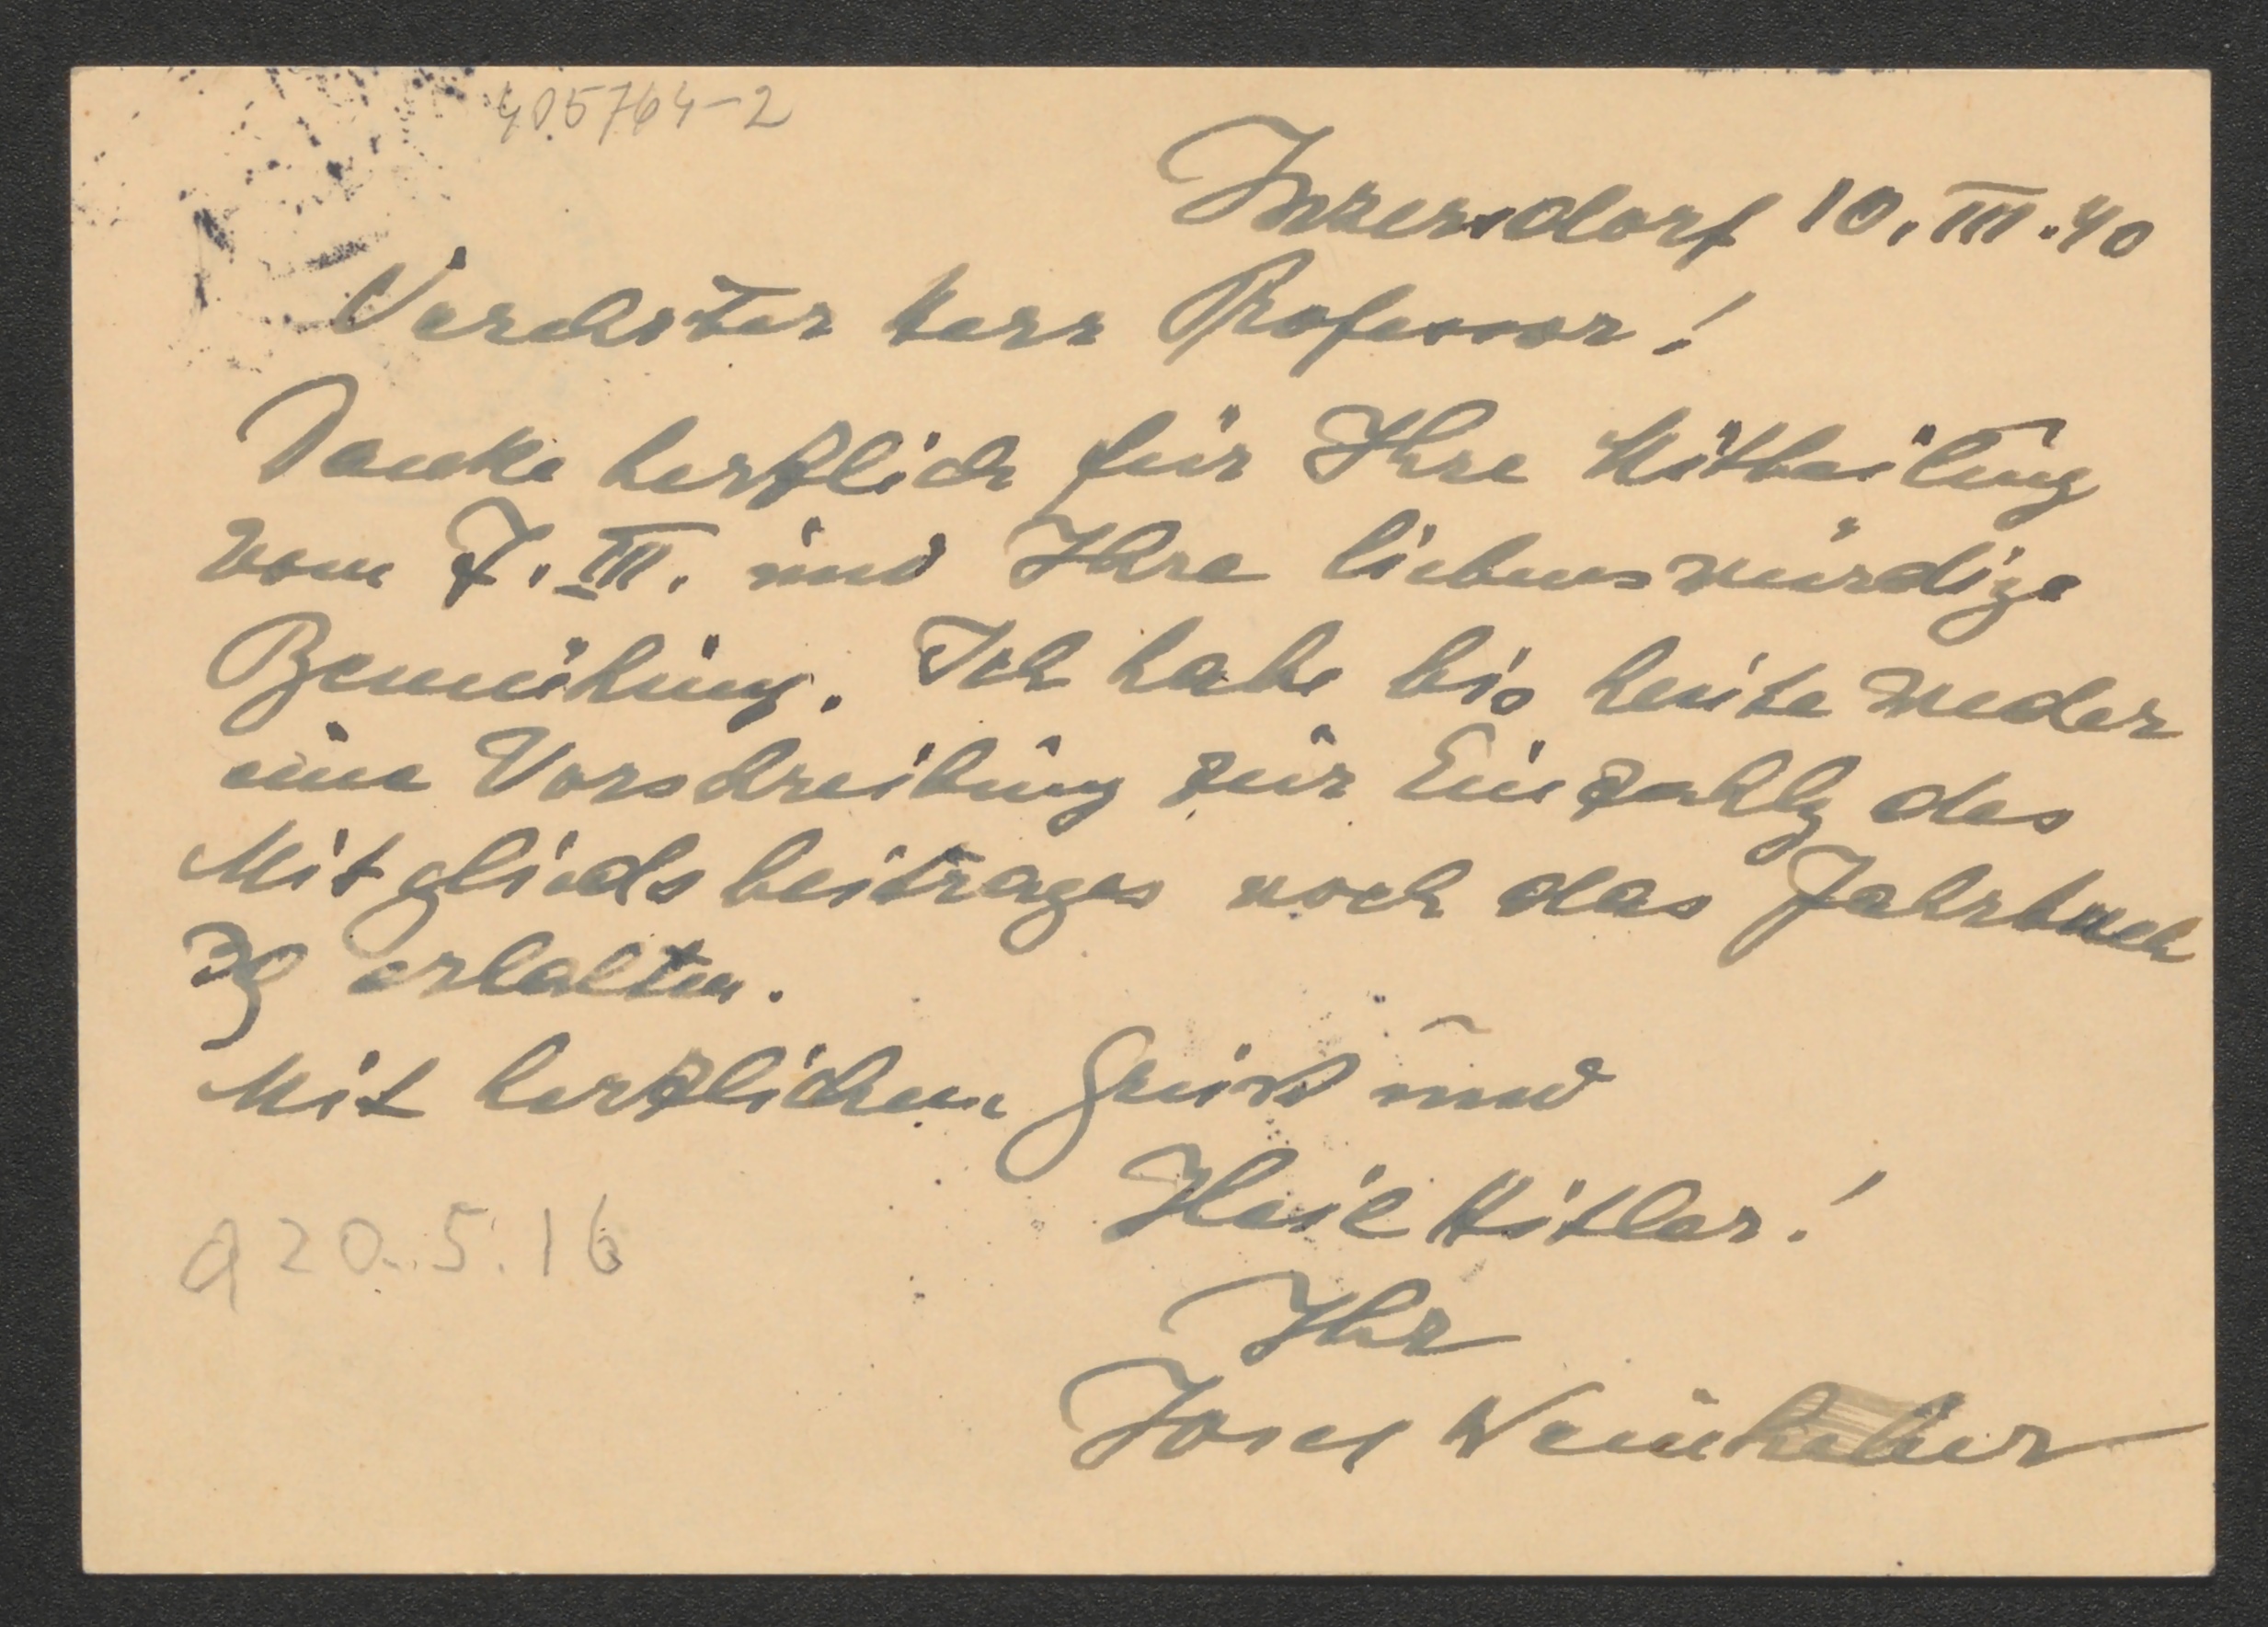 405764-2
Inzersdorf 10. III. 40
Verehrter Herr Professor!
Danke herzlich für Ihre Mitteilung
vom 7. III. und Ihre liebenswürdige
Bemühung. Ich habe bis heute weder
eine Vorschreibung zur Einzahlg des
Mitgliedsbeitrages noch das Jahrbuch
39 erhalten.
Mit herzlichem Gruß und
Heil Hitler!
Ihr
Josef Weinheber
a 20.5.16